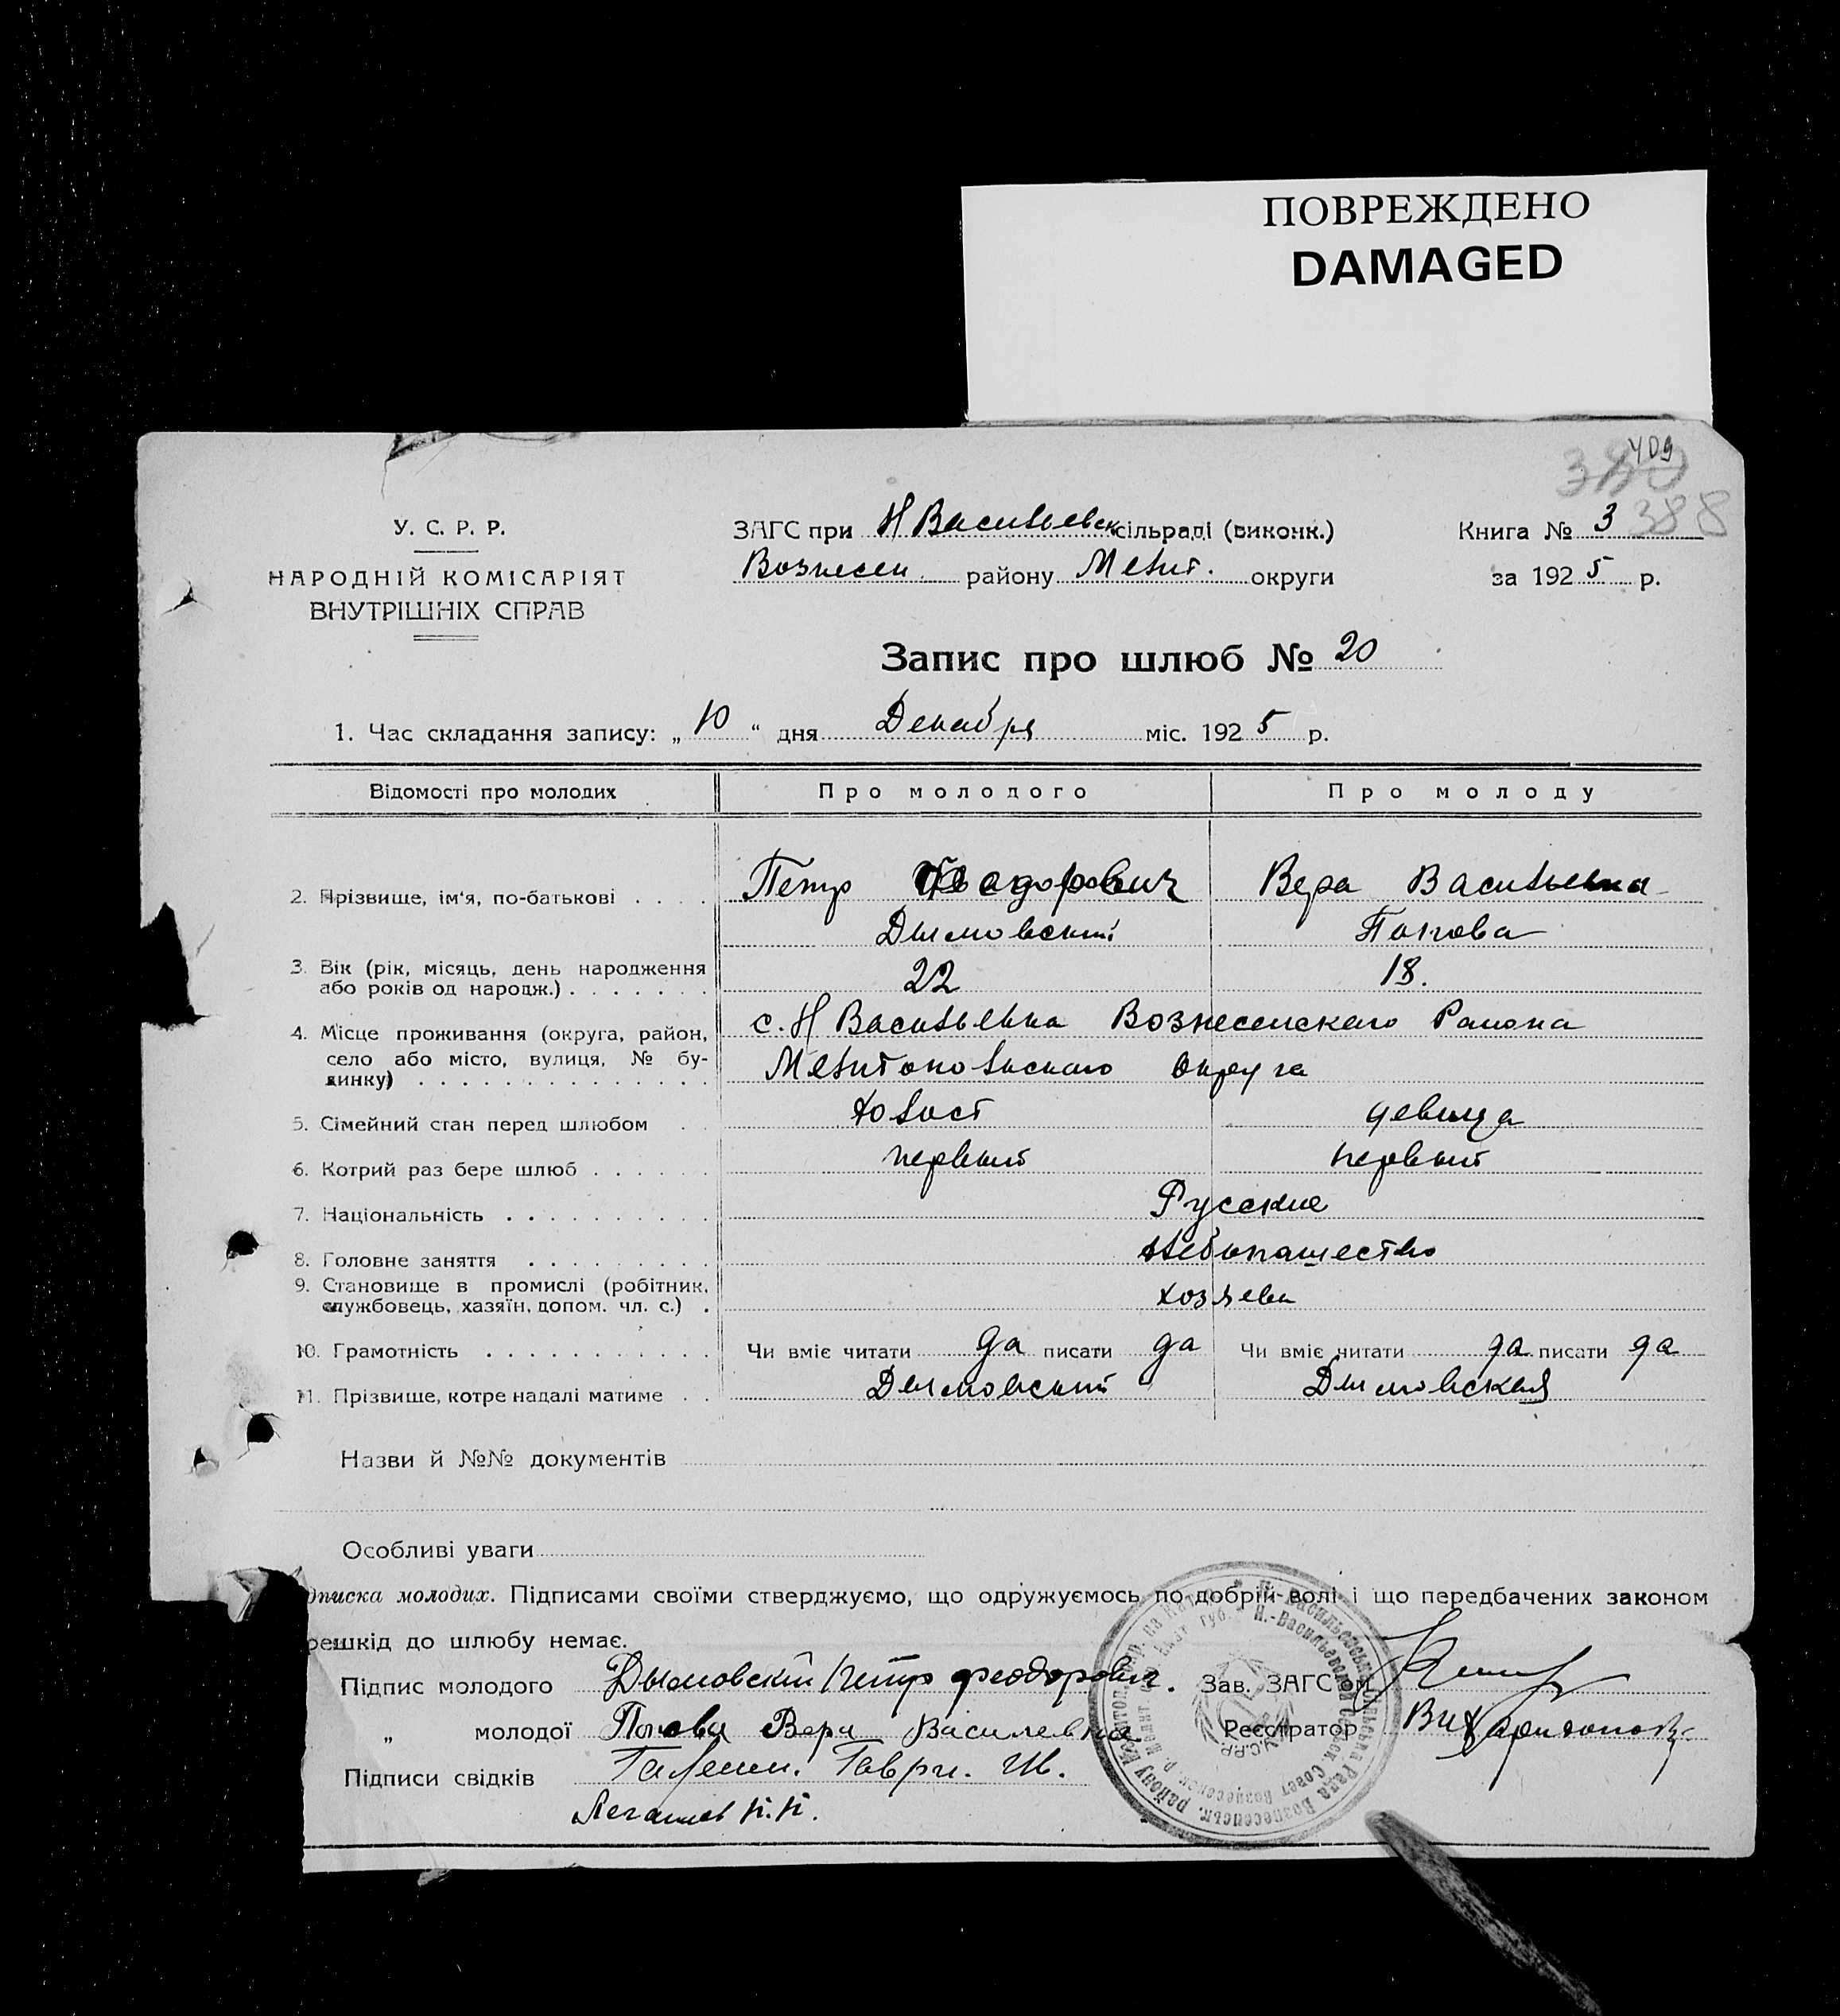 ПОВРЕЖДЕНО
DAMAGED
409
380
388
У. С. Р. Р.
НАРОДНІЙ КОМІСАРІЯТ
ВНУТРІШНІХ СПРАВ
ЗАГС при Н Васильевск сільраді (виконк.)
Вознесен. району Мелит. округи
Книга № 3
за 1925 р.
Запис про шлюб № 20
1. Час складання запису: „ 10 “ дня Декабря міс. 1925 р.
Відомості про молодих Про молодого Про молоду
2. Прізвище, ім'я, по-батькові . . . . Петр Феодорович Вера Васильевна
Дымовский Попова
3. Вік (рік, місяць, день народження
або років од народж.) . . . . . . . 22 18.
4. Місце проживання (округа, район, с. Н Васильевка Вознесенского Района
село або місто, вулиця, № бу-
динку) . . . . . . . . . . . . . . Мелитопольского Округа
5. Сімейний стан перед шлюбом . . холост девица
6. Котрий раз бере шлюб . . . . . . первый первый
7. Національність . . . . . . . . . . Русские
8. Головне заняття . . . . . . . . . Хлебопашество
9. Становище в промислі (робітник,
службовець, хазяїн, допом. чл. с.) . хозяева
10. Грамотність . . . . . . . . . . . Чи вміє читати да писати да Чи вміє читати да писати да
11. Прізвище, котре надалі матиме . . Дымовский Дымовская
Назви й №№ документів
Особливі уваги
дписка молодих. Підписами своїми стверджуємо, що одружуємось по добрій волі і що передбачених законом
решкід до шлюбу немає.
Підпис молодого Дымовский Петр Феодорович. Зав. ЗАГС'ом
„ молодої Попова Вера Василевна Реєстратор
Підписи свідків Гаври.